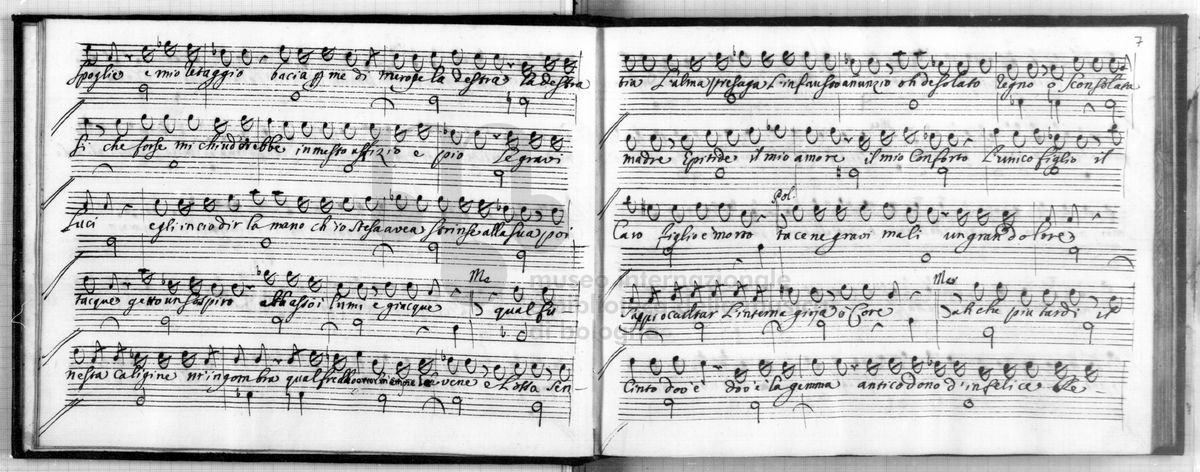 Spoglie e mio letaggio bacia p me di merope la destra la destra
Si che forse mi chiuderebbe in mesto offizio e pio le gravi
Luci egli in cio dir la mano ch'io stesa avea strinse alla sua poi
tacque getto un sospiro abbassò i lumi e giacque Me qual fu
nesta caligine m'ingombra qual freddo vene e l'ossa Sen-
7
tra L'alma presaga L'infausto anunzio oh desolato Regno o Sconsolata
madre Epitide il mio amore il mio Conforto L'unico figlio il
Pol.
Caro figlio è morto tacene gravi mali un gran dolore
Sappi ocultar L'interna gioja o Core Mer il
Cinto dov'è dov'è la gemma antico dono d'infelice Re-
museo internazionale
e biblioteca
di bologna